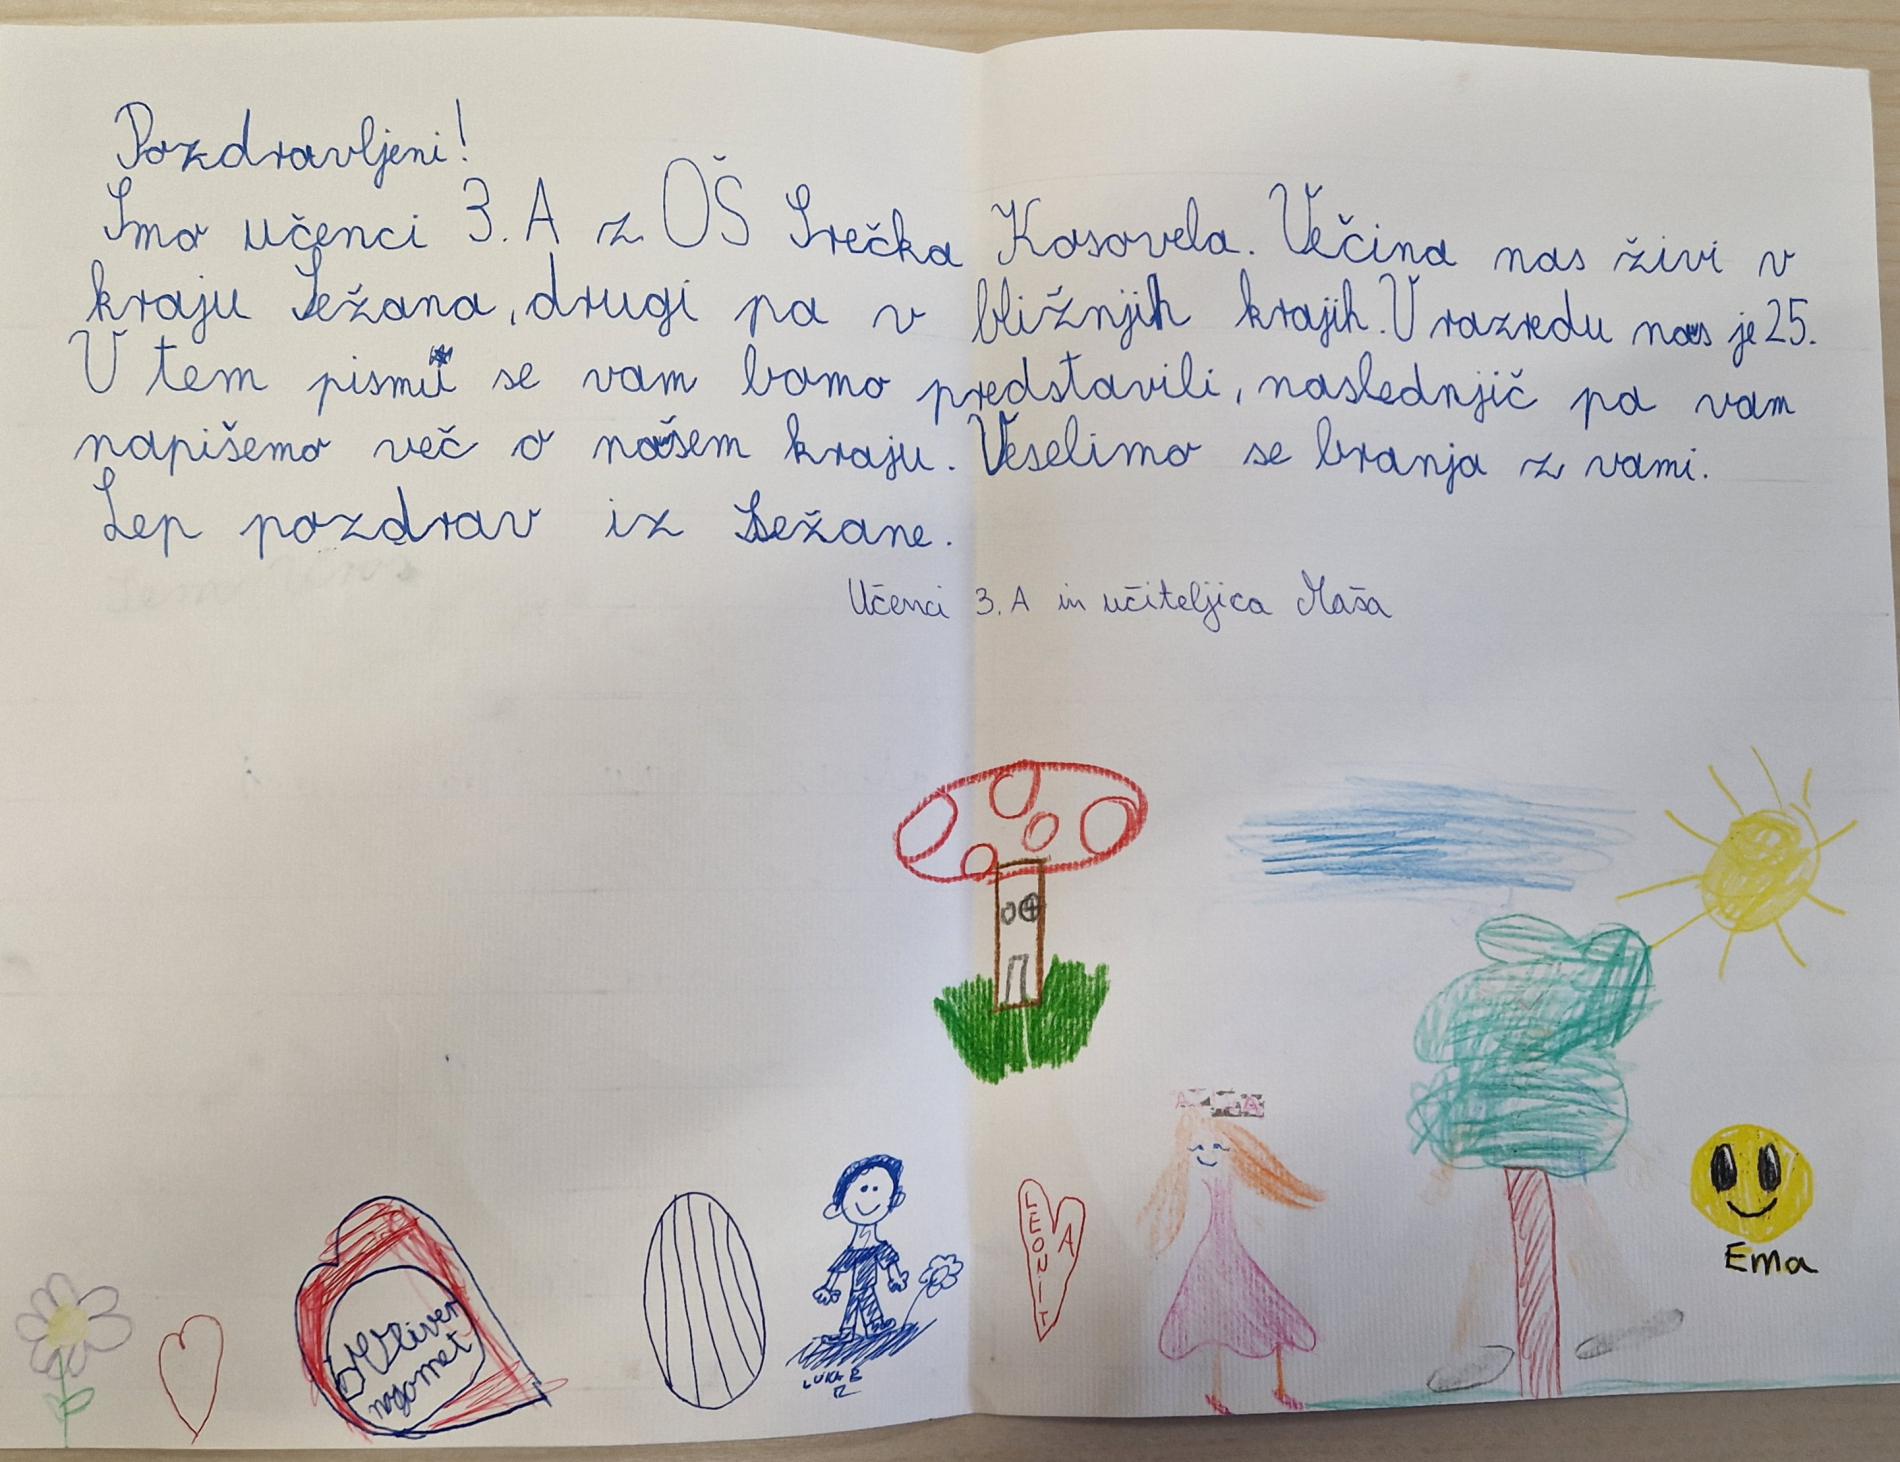 Pozdravljeni!
Smo učenci 3. A z OŠ Srečka Kosovela. Večina nas živi v
kraju Sežana, drugi pa v bližnjih krajih. V razredu nas je 25.
V tem pismu se vam bomo predstavili, naslednjič pa vam
napišemo več o našem kraju. Veselimo se branja z vami.
Lep pozdrav iz Sežane.
Učenci 3. A in učiteljica Maša
LEONIT
A
Ema
Oliver
nogomet
LUKA B